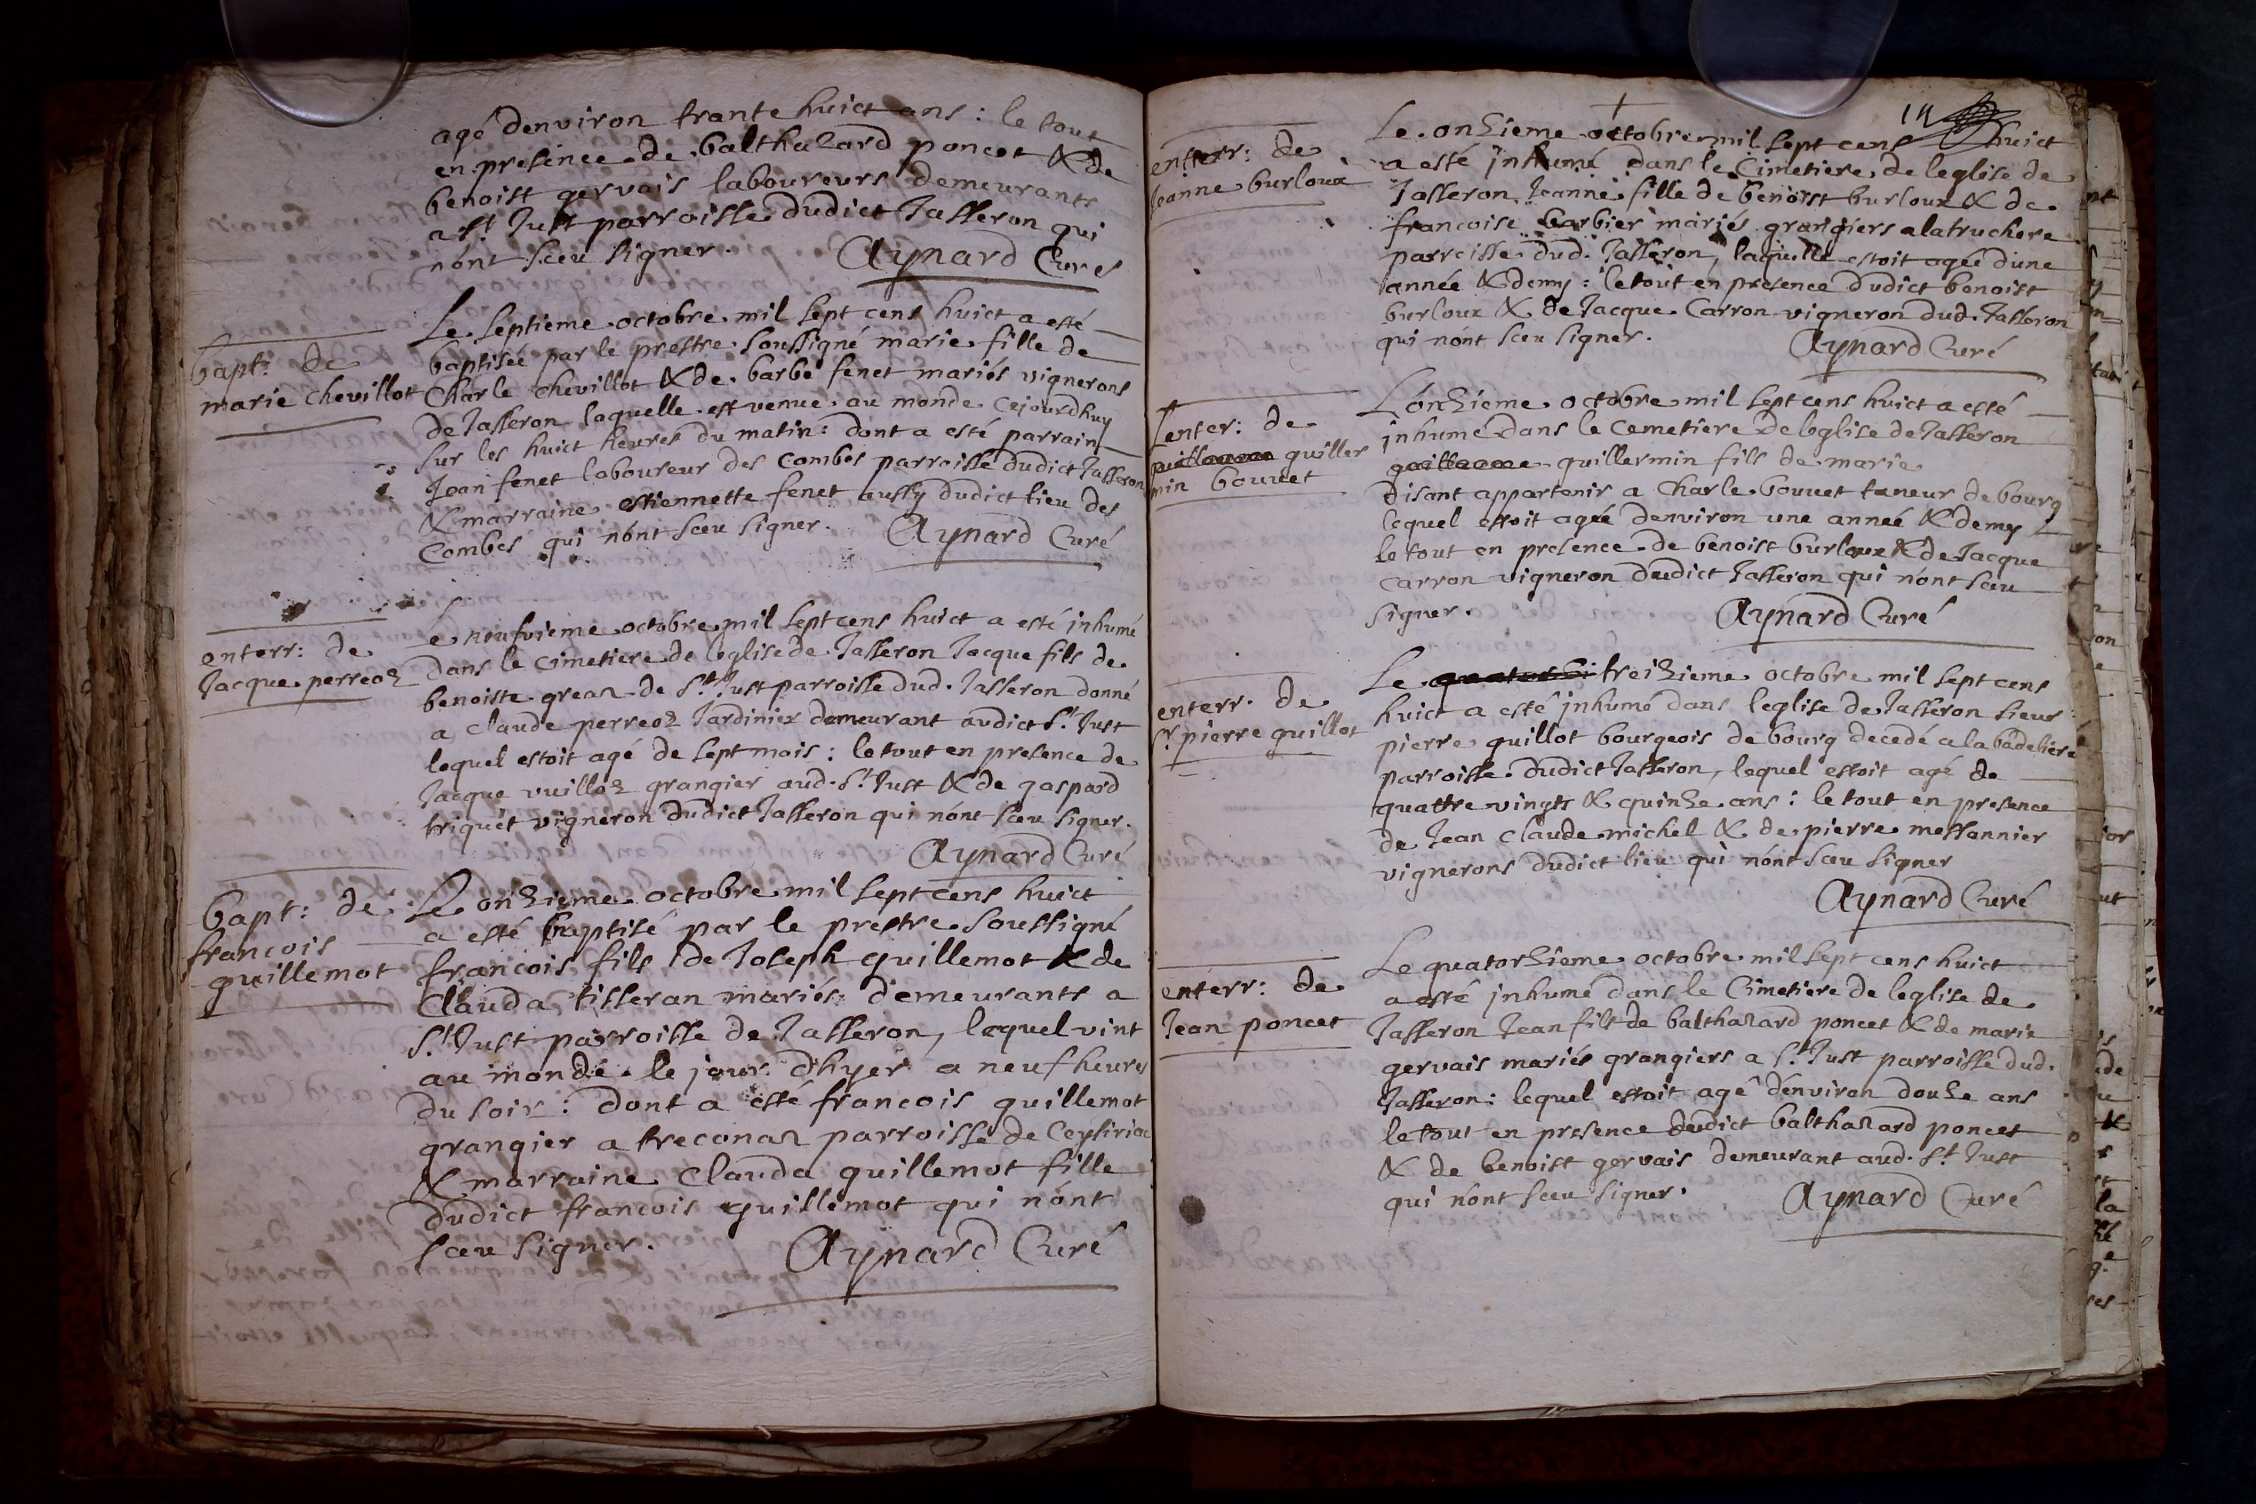 agé denviron trante huict ans : le tout
en presence de balthazard poncet & de
benoist gervais laboureurs demeurants
a st Just parroisse dudict Jasseron qui
nont sceu signer. Aynard Curé
bapt: de
marie chevillot
Le septieme octobre mil sept cens huict a esté
baptisée par le prestre soussigné marie fille de
Charle chevillot & de barbe fenet mariés vignerons
de Jasseron laquelle est venue au monde cejourdhuy
sur les huict heures du matin: dont a esté parrain
Jean fenet laboureur des combes parroisse dudict Jasseron
& marraine estiennette fenet aussy dudict lieu des
Combes qui nont sceu signer. Aynard Curé
enterr: de
Jacque perreaz
Le neufvieme octobre mil sept cens huict a esté inhumé
dans le cimetiere de leglise de Jasseron Jacque fils de
benoiste greaz de st Just parroisse dud. Jasseron donné
a claude perreoz Jardinier demeurant audict st Just
lequel estoit agé de sept mois: le tout en presence de
Jacque vuilloz grangier aud. st Just & de gaspard
triquet vigneron dudict Jasseron qui nont sceu signer.
Aynard Curé
bapt: de
francois
guillemot
Le onzieme octobre mil sept cens huict
a esté baptisé par le prestre soussigné
francois fils de Joseph guillemot & de
Clauda tisseran mariés demeurants a
st Just parroisse de Jasseron, lequel vint
au monde le jour dhyer a neuf heures
du soir: dont a esté francois guillemot
grangier a treconaz parroisse de Ceysiriac
& marraine clauda guillemot fille
dudict francois guillemot qui nont
sceu signer. Aynard Curé
14
enterr: de
Jeanne burloux
Le onzieme octobre mil sept cens huict
a esté inhumé dans le Cimetiere de leglise de
Jasseron Jeanne fille de benoist burloux & de
francoise barbier mariés grangiers a latruchere
parroisse dud. Jasseron, laquelle estoit agée dune
année & demy: le tout en presence dudict benoist
burloux & de Jacque Carron vigneron dud. Jasseron
qui nont sceu signer. Aynard Curé
Lenter: de
guiller
min bouvet
Lonzieme octobre mil sept cens huict a esté
inhumé dans le cemetiere de leglise de Jasseron
guillermin fils de marie
disant appartenir a charle bouvet taneur de bourg
lequel estoit agée denviron une année & demy
le tout en presence de benoist burloux & de Jacque
carron vigneron dudict Jasseron qui nont sceu
signer. Aynard Curé
enterr. de
sr. pierre guillot
Le treizieme octobre mil sept cens
huict a esté inhumé dans leglise de Jasseron sieur
pierre guillot bourgeois de bourg decedé a la badeliere
parroisse dudict Jasseron, lequel estoit agé de
quattre vingts & quinze ans: le tout en presence
de Jean claude michel & de pierre messannier
vignerons dudict lieu qui nont sceu signer
Aynard Curé
enterr: de
Jean poncet
Le quatorzieme octobre mil sept cens huict
a esté inhumé dans le Cimetiere de leglise de
Jasseron Jean fils de balthazard poncet & de marie
gervais mariés grangiers a st Just parroisse dud.
Jasseron: lequel estoit agé denviron douze ans
le tout en presence dudict balthazard poncet
& de benoist gervais demeurant aud. st Just
qui nont sceu signer. Aynard Curé